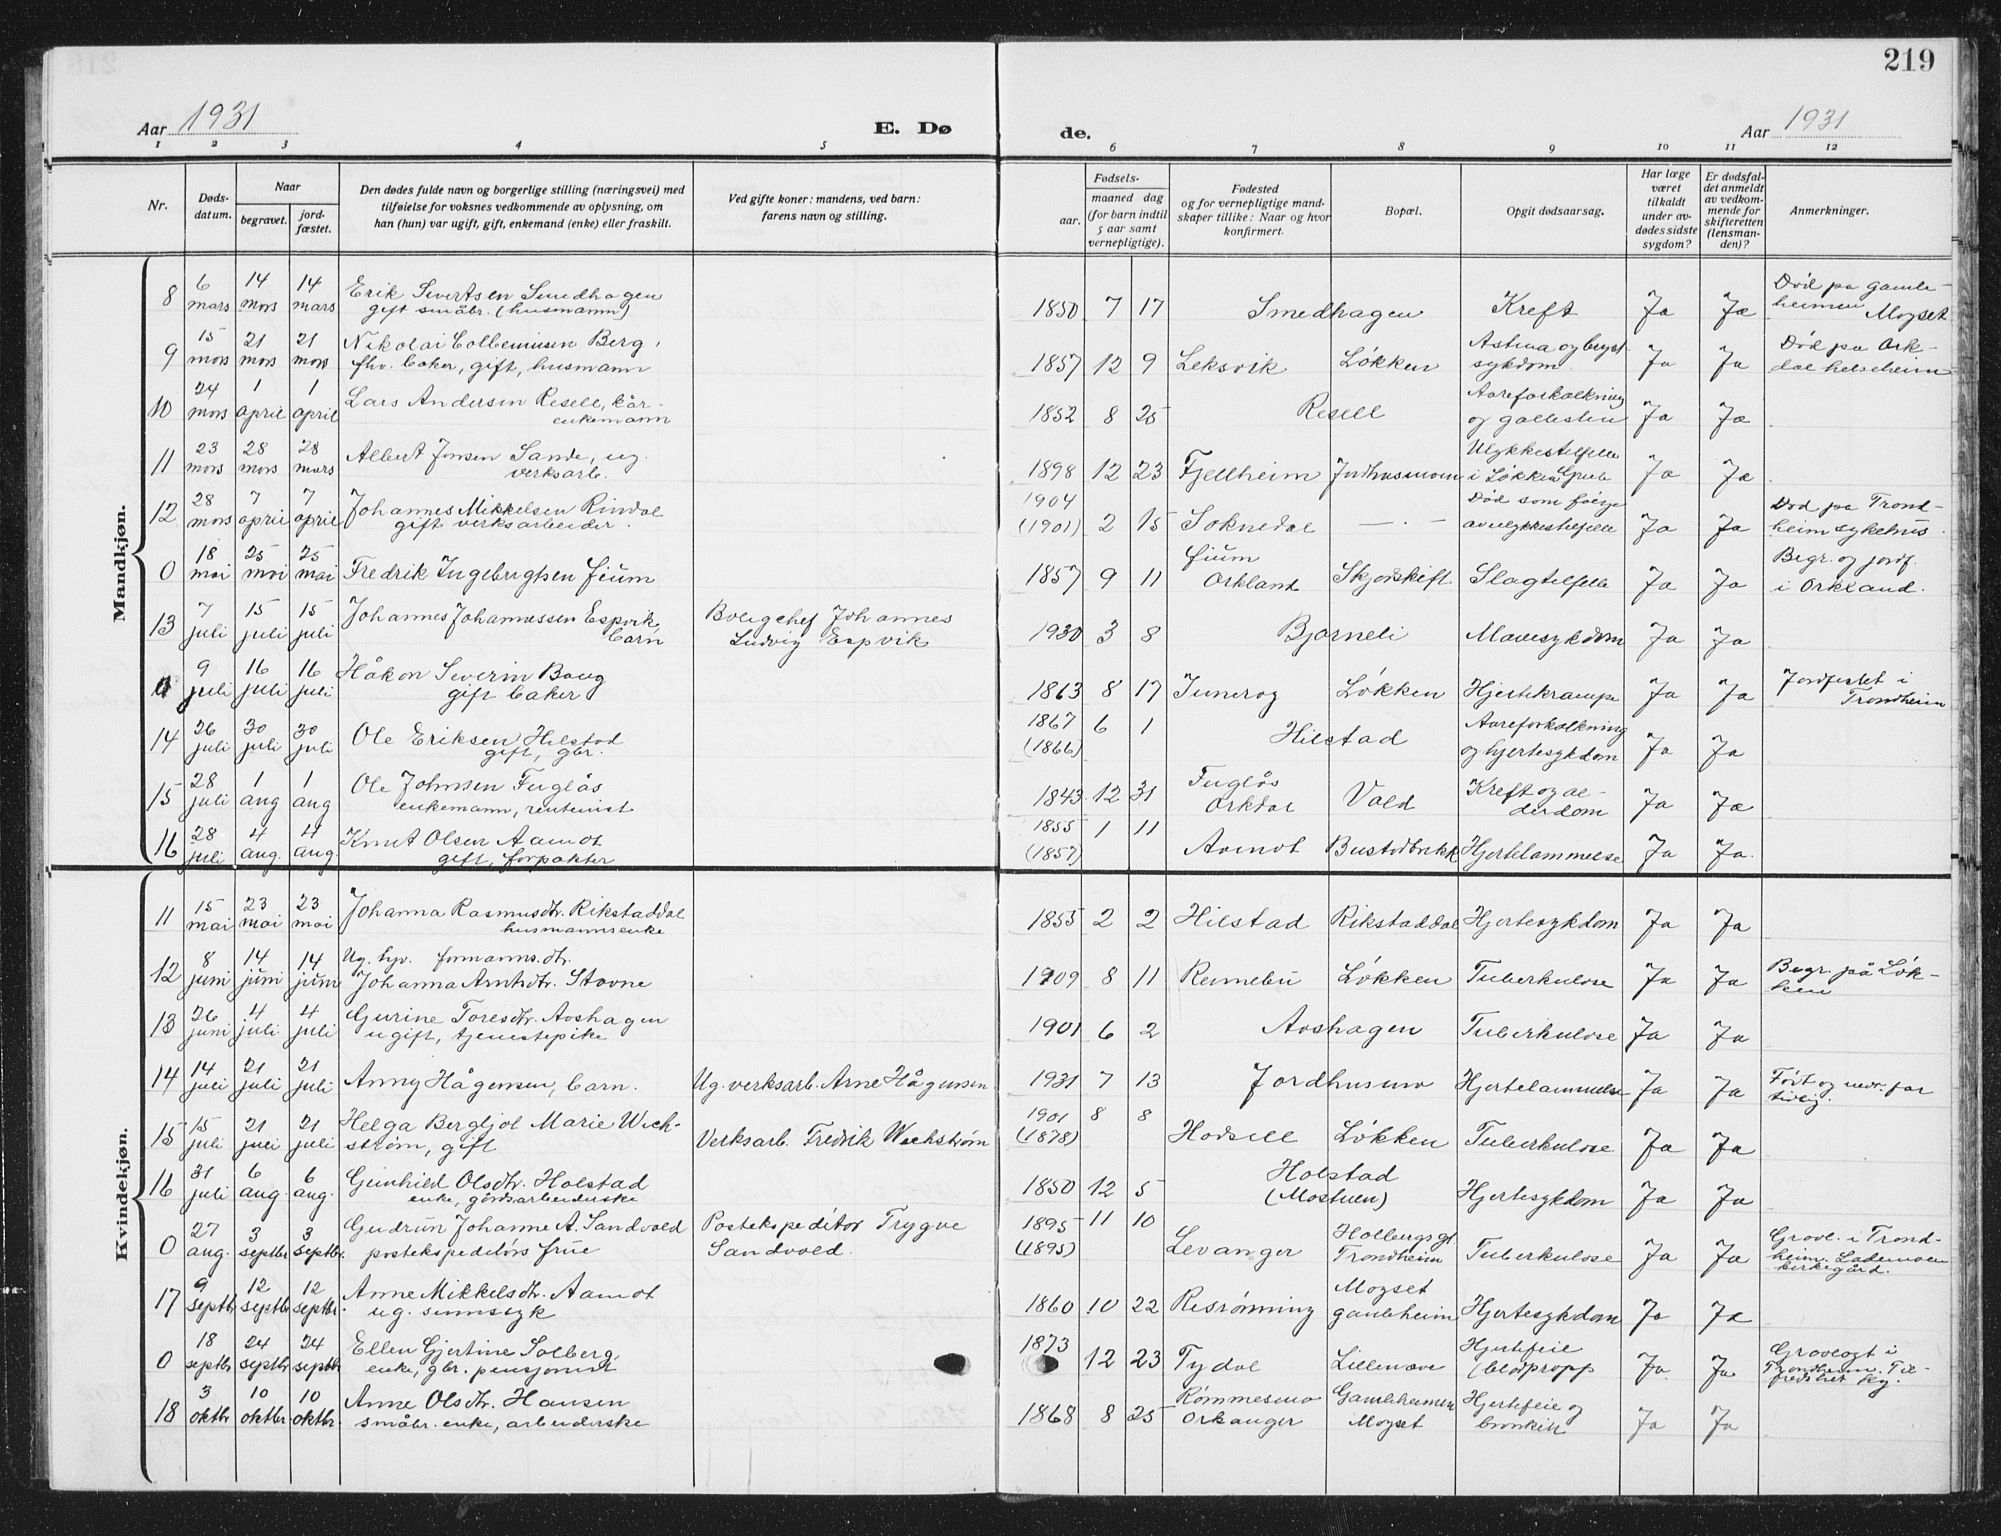 219
Aar 1931
E. Dø
de.
Aar 1931
1 2 3 4 5 6 7 8 9 10 11 12
Nr.
Døds-
datum.
Naar
begravet.
jord-
fæstet.
Den dødes fulde navn og borgerlige stilling (næringsvei) med
tilføielse for voksnes vedkommende av oplysning, om
han (hun) var ugift, gift, enkemand (enke) eller fraskilt.
Ved gifte koner: mandens, ved barn:
farens navn og stilling.
Fødsels-
aar.
maaned dag
(for barn indtil
5 aar samt
vernepligtige).
Fødested
og for vernepligtige mand-
skaper tillike: Naar og hvor
konfirmert.
Bopæl.
Opgit dødsaarsag.
Har læge
været
tilkaldt
under av-
dødes sidste
sygdom?
Er dødsfal-
det anmeldt
av vedkom-
mende for
skifteretten
(lensman-
den)?
Anmerkninger.
Mandkjøn.
8 6 mars 14 mars 14 mars Erik Sivertsen Smedhagen
gift småbr. (husmann)
1850 7 17 Smedhagen Kreft Ja Ja Död på gamle-
heimen Mogset
9 15 mars 21 mars 21 mars Nikolai Berg,
fhv. baker, gift, husmann
1857 12 9 Leksvik Løkken Astma og bryst-
sykdom. Ja Ja Död på Ork-
dal helseheim
10 24 mars 1 april 1 april Lars Andersen Resell, kår-
enkemann
1852 8 25 Resell Aareforkalkning
og gallesten Ja Ja
11 23 mars 28 mars 28 mars Albert Jonsen Sande, ug.
verksarb.
1898 12 23 Fjellheim Jordhusmoen Ulykkestilfelle
i Løkken Grube Ja Ja
12 28 mars 7 april 7 april Johannes Mikkelsen Rindal
gift verksarbeider.
1904
(1901) 2 15 Soknedal — . — Död som følge
av ulykkestilfelle Ja Ja Död på Trond-
heim sykehus.
0 18 mai 25 mai 25 mai Fredrik Ingebrigtsen Gium
1857 9 11 Gium
Orkland Skjødskift Slagtilfelle Ja Ja Begr. og jordf.
i Orkland.
13 7 juli 15 juli 15 juli Johannes Johannessen Espvik
barn
Boligchef Johannes
Ludvig Espvik
1930 3 8 Bjørneli Mavesykdom Ja Ja
0 9 juli 16 juli 16 juli Håkon Severin Baug
gift baker
1863 8 17 Løkken Hjertekrampe Ja Ja Jordfestet i
Trondheim
14 26 juli 30 juli 30 juli Ole Eriksen Hilstad
gift, gbr.
1867
(1866) 6 1 Hilstad Aareforkalkning
og hjertesykdom Ja Ja
15 28 juli 1 aug 1 aug Ole Johnsen Fuglås
enkemann, rentenist
1843 12 31 Fuglås
Orkdal Vold Kreft og al-
derdom Ja Ja
16 28 juli 4 aug. 4 aug. Knut Olsen Aamot
gift, forpakter
1855
(1857) 1 11 Aamot Bustadbrekk Hjertelammelse Ja Ja.
Kvindekjøn.
11 15 mai 23 mai 23 mai Johanna Rasmusdtr. Rikstaddal
husmannsenke
1855 2 2 Hilstad Rikstaddal Hjertesykdom Ja Ja
12 8 juni 14 juni 14 juni Ug. hjv. formanns.dtr.
Johanna Arntsdtr. Stavne
1909 8 11 Rennebu Løkken Tuberkulose Ja Ja Begr. på Løk-
ken
13 26 juni 4 juli 4 juli Gurine Toresdtr. Aoshagen
ugift, tjenestepike
1901 6 2 Aoshagen Tuberkulose Ja Ja
14 14 juli 21 juli 21 juli Anny Hågensen, barn.
Ug. verksarb. Arne Hågensen
1931 7 13 Jordhusmo Hjertelammelse Ja Ja Født og nedk. for
tidlig.
15 15 juli 21 juli 21 juli Helga Bergljot Marie Wech-
strøm, gift
Verksarb. Fredrik Wechstrøm
1901
(1878) 8 8 Hadsell Løkken Tuberkulose Ja Ja
16 31 juli 6 aug. 6 aug. Gunhild Olsdtr. Holstad
enke, gårdsarbeiderske
1850 12 5 Holstad
(Mostuen) Hjertesykdom Ja Ja
0 27 aug. 3 septbr 3 septbr. Gudrun Johanne A. Sandvold
postekspeditørs frue
Postekspeditør Trygve
Sandvold.
1895
(1895) 11 10 Levanger Holbergsgt.
Trondheim Tuberkulose Ja Ja Gravl. i Trond-
heim. Lademoen
kirkegård.
17 9 septbr 12 septbr 12 septbr. Anne Mikkelsdtr. Aamot
ug. sinnssyk
1860 10 22 Resrønning Mogset
gamleheim Hjertesykdom Ja Ja
0 18 septbr 24 septbr 24 septbr Ellen Gjertine Solberg
enke, gbr. pensjonist
1873 12 23 Tydal Lillemoe Hjertefeil
(blodpropp Ja Ja Gravlagt i
Trondheim. Til-
fredshet kg.
18 3 oktbr 10 oktbr 10 oktbr. Anne Olsdtr. Hansen
småbr. enke, arbeiderske
1868 8 25 Rømmesmo
Orkanger Gamleheimen
Mogset Hjertefeil og
bronkitt Ja Ja